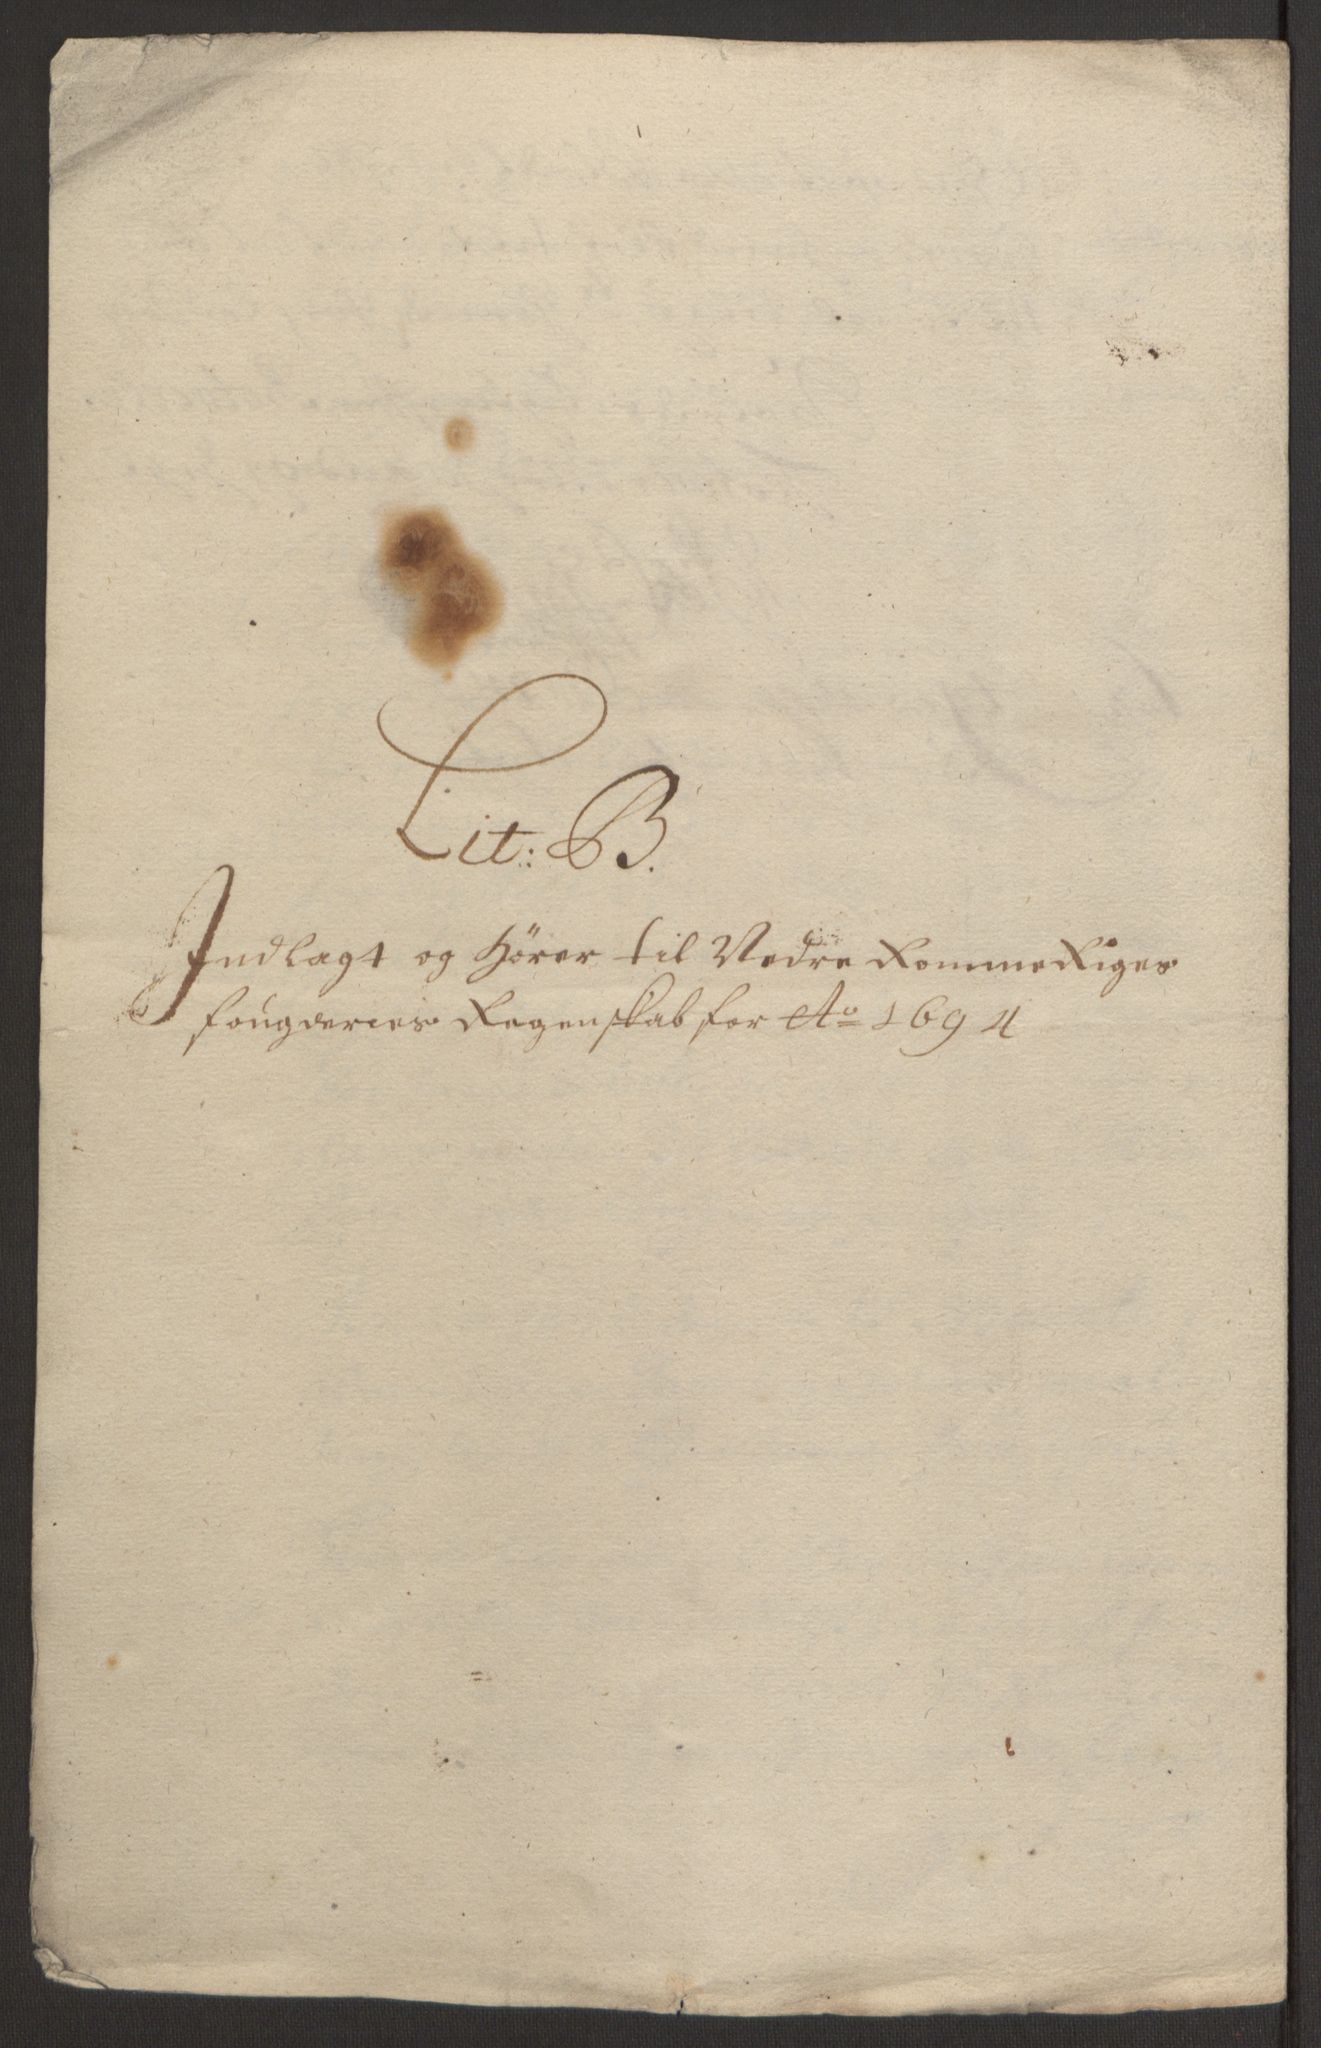 Lit: B.
Indlagt og hører til Nedre RommeRiges
fougderies Regenskab for Ao 1694